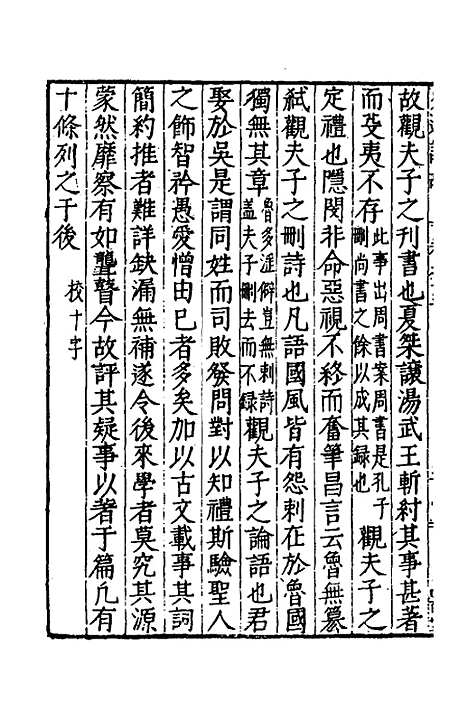 故觀夫子之刊書也夏桀讓湯武王斬紂其事甚著
而芟夷不存此事出周書案周書是孔子刪尚書之餘以成其錄也觀夫子之
定禮也隱閔非命惡視不終而奮筆昌言云魯無篡
弒觀夫子之刪詩也凡諸國風皆有怨刺在於魯國
獨無其章魯多淫僻豈無刺詩蓋夫子刪去而不錄觀夫子之論語也君
娶於吳是謂同姓而司敗發問對以知禮斯驗聖人
之飾智矜愚愛憎由已者多矣加以古文載事其詞
簡約推者難詳缺漏無補遂令後來學者莫究其源
蒙然靡察有如聾瞽今故訐其疑事以著于篇凡有
十條列之于後 校十字